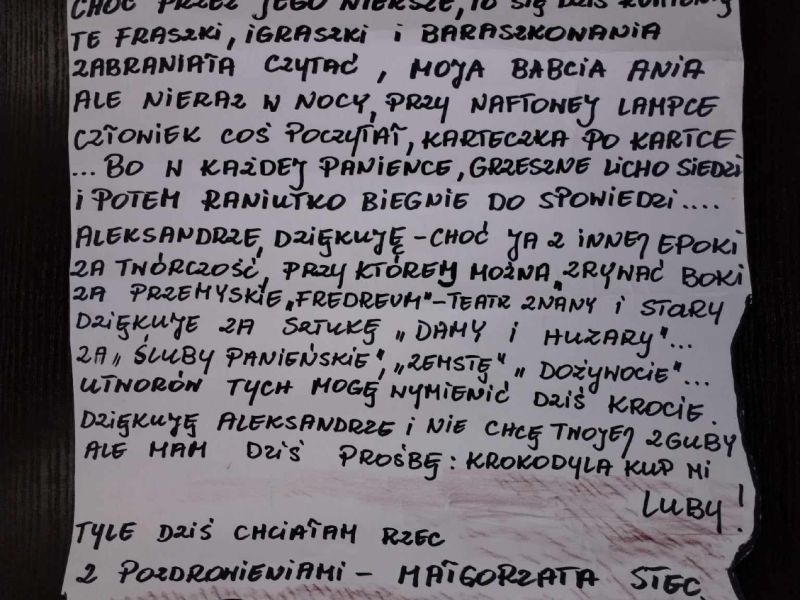 CHOĆ PRZEZ JEGO WIERSZE, TO SIĘ DZIŚ
TE FRASZKI, IGRASZKI I BARASZKOWANIA
ZABRANIAŁA CZYTAĆ, MOJA BABCIA ANIA
ALE NIERAZ W NOCY, PRZY NAFTOWEJ LAMPCE
CZŁOWIEK COŚ POCZYTAŁ, KARTECZKA PO KARTCE
... BO W KAŻDEJ PANIENCE, GRZESZNE LICHO SIEDZI
I POTEM RANIUTKO BIEGNIE DO SPOWIEDZI....
ALEKSANDRZE, DZIĘKUJĘ - CHOĆ JA Z INNEJ EPOKI
ZA TWÓRCZOŚĆ, PRZY KTÓREJ MOŻNA ZRYWAĆ BOKI
ZA PRZEMYSKIE „FREDREUM" - TEATR ZNANY I STARY
DZIĘKUJĘ ZA SZTUKĘ „DAMY I HUZARY"...
ZA „ŚLUBY PANIEŃSKIE", „ZEMSTĘ" „DOŻYWOCIE"...
UTWORÓW TYCH MOGĘ WYMIENIĆ DZIŚ KROCIE.
DZIĘKUJĘ ALEKSANDRZE I NIE CHCĘ TWOJEJ ZGUBY
ALE MAM DZIŚ PROŚBĘ: KROKODYLA KUP MI
LUBY!
TYLE DZIŚ CHCIAŁAM RZEC
Z POZDROWIENIAMI - MAŁGORZATA STEC